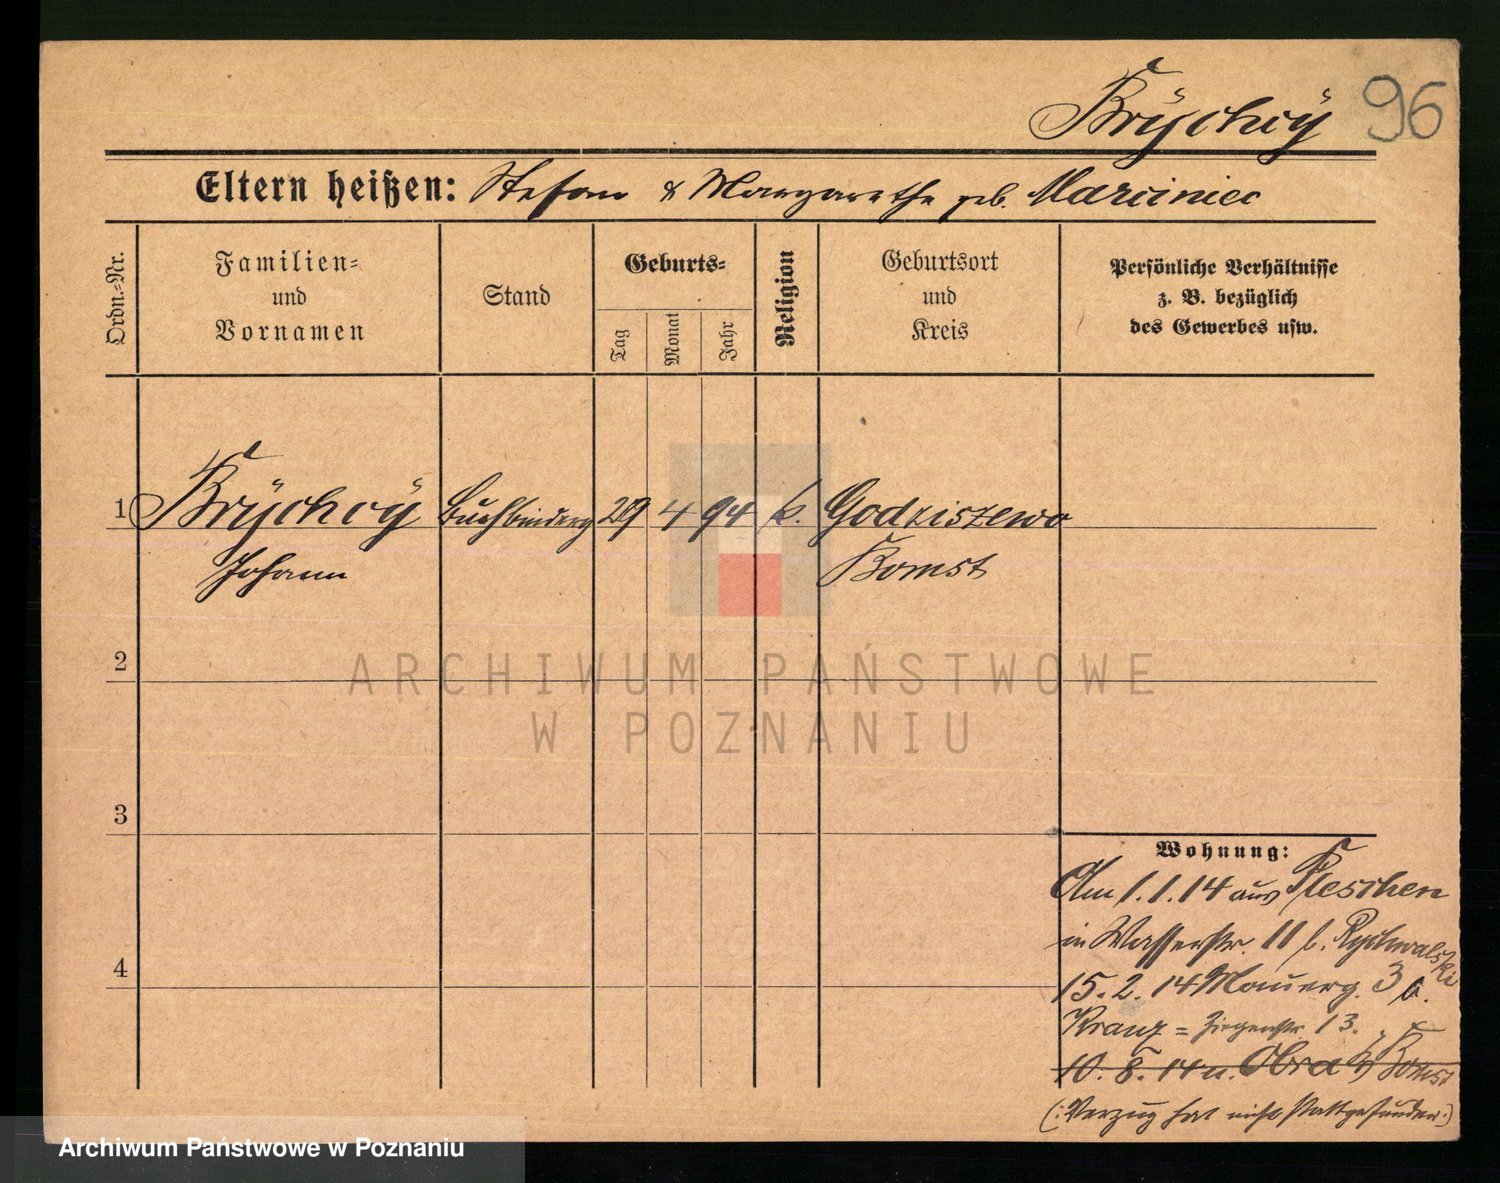 Brÿchcÿ 96
Eltern heißen: Stefan & Margarethe geb. Marciniec
Ordn.-Nr.
Familien-
und
Vornamen
Stand
Geburts-
Tag
Monat
Jahr
Religion
Geburtsort
und
Kreis
Persönliche Verhältnisse
z. B. bezüglich
des Gewerbes usw.
1 Brÿchcÿ Buchbinderg 29 4 94 k. Godziszewo
Johann Bomst
2
ARCHIWUM PAŃSTWOWE
W POZNANIU
3
Wohnung:
Am 1.1.14 aus Pleschen
in Wasserstr. 11 b. Rychwalski
4
15.2.14 Mauerg. 3 b.
Kranz = Ziegenstr 13.
10.8.14 n. Obra Kr. Bomst
(: Verzug hat nicht stattgefunden :)
Archiwum Państwowe w Poznaniu